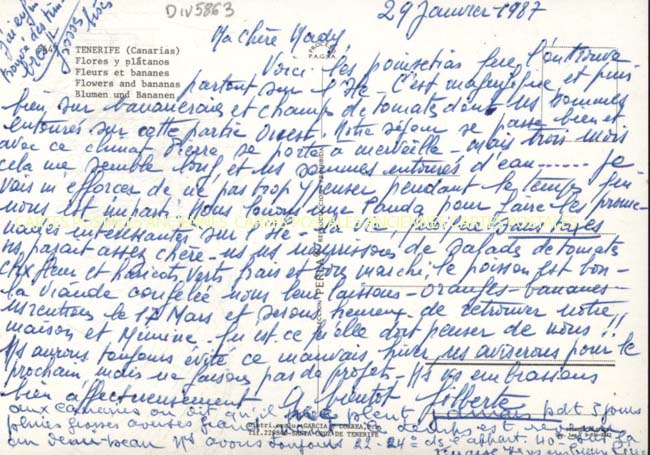 Div5863
29 Janvier-1987
Ma chère Mady,
TENERIFE (Canarias)
Flores y plátanos
Fleurs et bananes
Flowers and bananas
Blumen und Bananen
Voici les poinsettias que l'on trouve
partout sur l'Ile - C'est magnifique et puis
bien sur bananeraies et champs de tomates dont ns sommes
entourés sur cette partie Ouest. Notre séjour se passe bien et
avec ce climat Pierre se porte à merveille - mais trois mois
cela me semble long et ns sommes entourés d'eau ...... je
vais m'efforcer de ne pas trop y penser pendant le temps qui
nous est imparti. Nous louons une Panda pour faire les prome
nades intéressantes sur l'Ile
ns payant assez chère - ns ns nourrissons de salades de tomates
choux fleur et haricots verts frais et bon marché, le poisson est bon -
la viande congelée nous leur laissons - oranges - bananes -
ns rentrons le 12 Mars et serons heureux de retrouver notre
maison et Mimine - Qu'est-ce qu'elle doit penser de nous !!
Ns aurons toujours évité ce mauvais hiver ns aviserons pour le
prochain mais ne faisons pas de projets - Ns vs embrassons
bien affectueusement A bientôt Gilberte
aux Canaries on dit qu'il ne pleut jamais pdt 3 jours
pluies grosses averses
GARCIA Y CORREA
SANTA CRUZ DE TENERIFE
Ns avons toujours 22-24° ds l'appart.